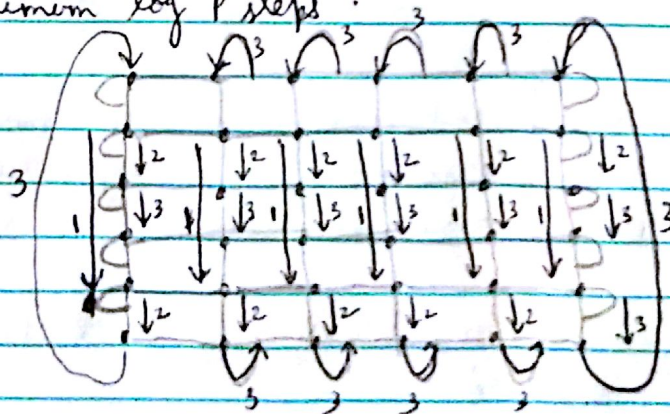 log P steps
3 3 3 3
2 2 2 2 2 2
3 1 3 1 3 1 3 1 3 1 3 1 3 3
2 2 2 2 2 3
3 3 3 3